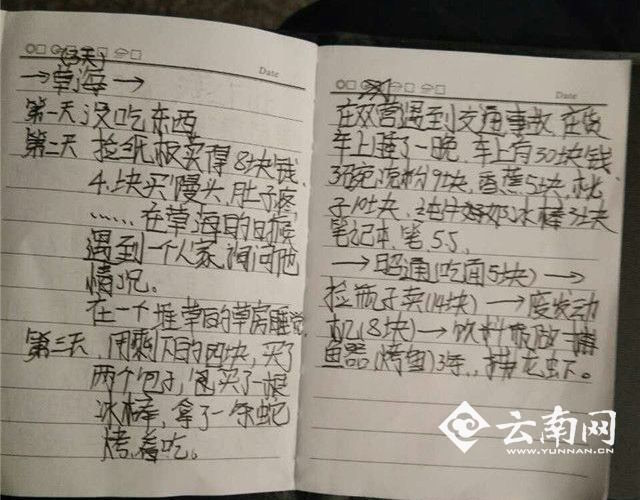 Date
→草海→
第一天 没吃东西
第二天 捡纸板卖得8块钱,
4块买馒头,肚子疼,
……在草海的时候
遇到一个人家询问他
情况。
在一个堆草的草房睡觉
第三天,用剩下的四块,买了
两个包子,包买了一根
冰棒,拿了一条蛇
烤着吃。
Date
在双营遇到交通事故,在货
车上睡了一晚,车上有30块钱,
3碗凉粉9块,香蕉5块,桃
子10块,冰棒3块
笔记本,笔5.5,
→昭通(吃面5块)→
捡瓶子卖(14块)→废发动
机(8块)→饮料瓶做捕
鱼器(烤鱼)3条,龙虾。
云南网
WWW.YUNNAN.CN